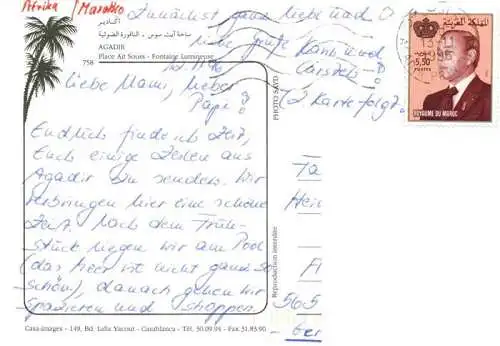 Afrika / Marokko
Zunächst ganz liebe nach D
أكادير
ساحة آيت سوس - النافورة الضوئية
AGADIR
Place Ait Souss - Fontaine Lumineuse
758
liebe Grüße
Carsten
(2. Karte folgt)
المملكة المغربية
5,50
POSTES
ROYAUME DU MAROC
1995
PHOTO SAVO
Liebe Mami, lieber
Papi!
Endlich finde ich Zeit,
Euch einige Zeilen aus
Agadir zu senden. Wir
verbringen hier eine schöne
Zeit. Nach dem Früh-
stück liegen wir am Pool
(das Meer ist nicht ganz so
schön), danach gehen wir
spazieren und shoppen.
Reproduction interdite
Fa
Hei
565
Casa-images - 149, Bd. Lalla Yacout - Casablanca - Tél. 30.09.94 - Fax 31.83.90